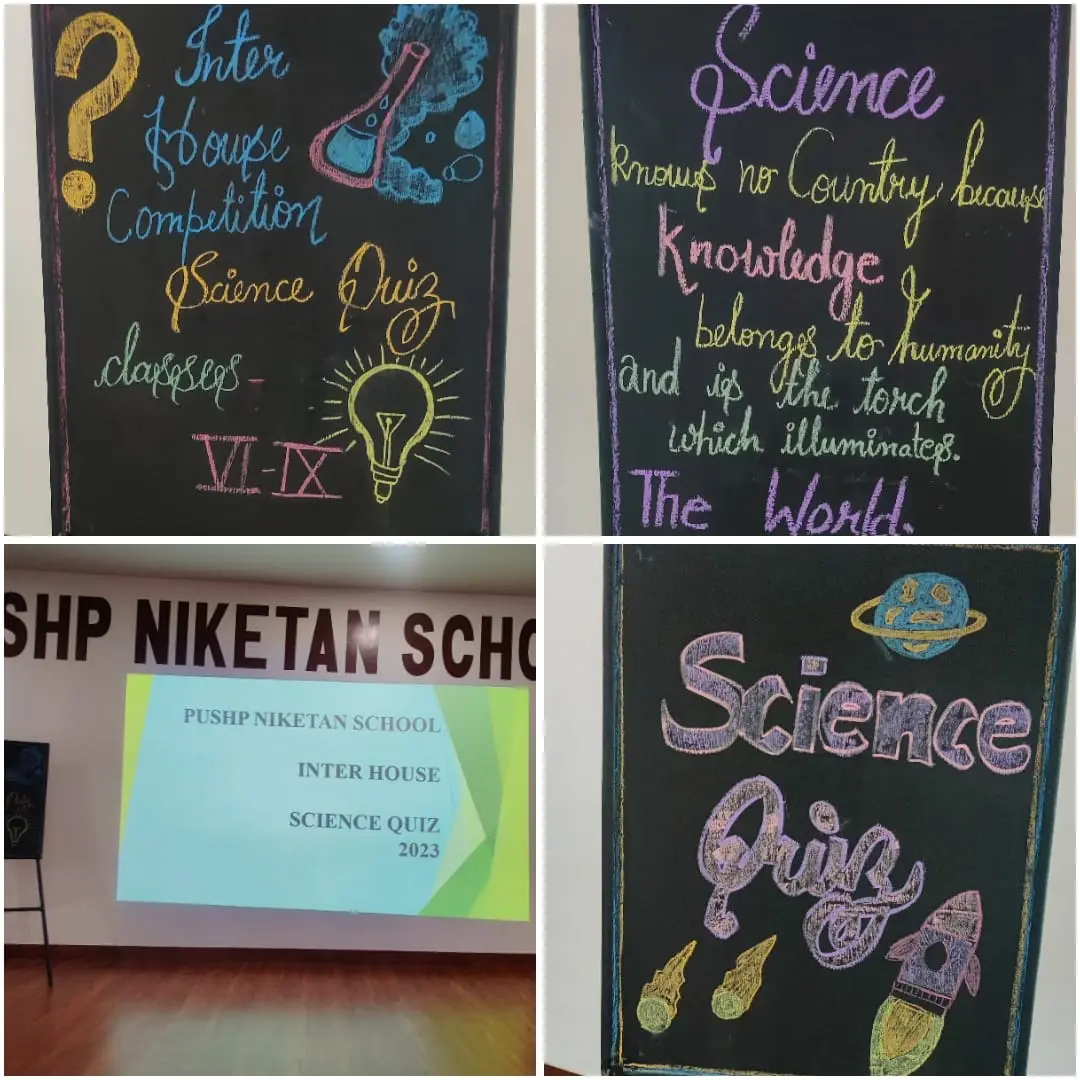 Inter
House
Competition
Science Quiz
classes -
VI - IX
Science
knows no Country because
Knowledge
belongs to humanity
and is the torch
which illuminates.
The World.
SHP NIKETAN SCHO
PUSHP NIKETAN SCHOOL
INTER HOUSE
SCIENCE QUIZ
2023
Science
Quiz